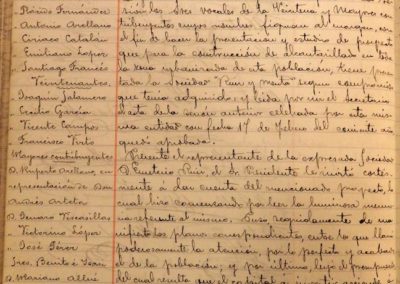 Plácido Fernández
" Antonio Arellano
" Ciriaco Catalán
" Emiliano López
" Santiago Francés
Veintenantes.
" Joaquín Jalamero
" Cecilio García
" Vicente Campos
" Francisco Virto
Mayores contribuyentes
D. Ruperto Arellano, en
representación de Don
Andrés Arteta
D. Genaro Vizcaíllas
" Victorino López
" José Pérez
D. Mariano Alliné
los Sres vocales de la Veintena y Mayores con-
tribuyentes cuyos nombres figuran al margen, con
el fin de hacer la presentación y estudio de proyecto
que para la construcción de Alcantarillado en toda
la zona urbanizada de esta población, tiene presen-
tada la Sociedad "Ruiz y Mento" según compromiso
que tenía adquirido; y leída por mí el Secretario
el acta de la sesión anterior celebrada por esta mis-
ma entidad con fecha 17 de Febrero del corriente año
quedó aprobada.
Presente el representante de la expresada Sociedad
D. Emeterio Ruiz, el Sr. Presidente le invitó cortés-
mente a dar cuenta del mencionado proyecto, lo
cual hizo comenzando por leer la luminosa memo-
ria referente al mismo. Puso seguidamente de ma-
nifiesto los planos correspondientes, entre los que llamó
poderosamente la atención, por lo perfecto y acabado,
el de la población; y por último, leyó el presupuesto
del cual resulta que el